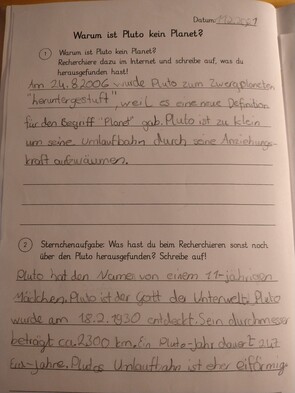 Datum:
Warum ist Pluto kein Planet?
1 Warum ist Pluto kein Planet?
Recherchiere dazu im Internet und schreibe auf, was du
herausgefunden hast!
Am 24.8.2006 wurde Pluto zum Zwergplaneten
"heruntergestuft", weil es eine neue Definition
für den Begriff "Planet" gab. Pluto ist zu klein
um seine Umlaufbahn durch seine Anziehungs-
kraft aufzuräumen.
2 Sternchenaufgabe: Was hast du beim Recherchieren sonst noch
über den Pluto herausgefunden? Schreibe auf!
Pluto hat den Namen von einem 11-jährigen
Mädchen. Pluto ist der Gott der Unterwelt. Pluto
wurde am 18.2.1930 entdeckt. Sein durchmesser
beträgt ca. 2300 km. Ein Pluto-Jahr dauert
Plutos Umlaufbahn ist eher eiförmig